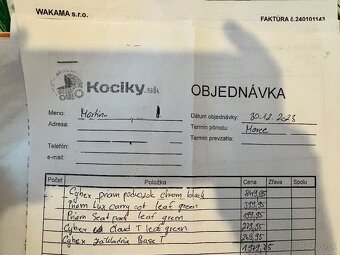 WAKAMA s.r.o.
FAKTÚRA č.240101143
Kociky.sk
OBJEDNÁVKA
Meno: Martina
Adresa:
Telefón:
e-mail:
Dátum objednávky: 30.12.2023
Termín pôrodu: Marec
Termín prevzatia:
Počet Položka Cena Zľava Spolu
Cybex priam podvozok chrom black 849,95
Priam Lux carry cot leaf green 399,95
Priam Seat pack leaf green 199,95
Cybex Cloud T leaf green 279,95
Cybex základňa Base T 249,95
1979,75